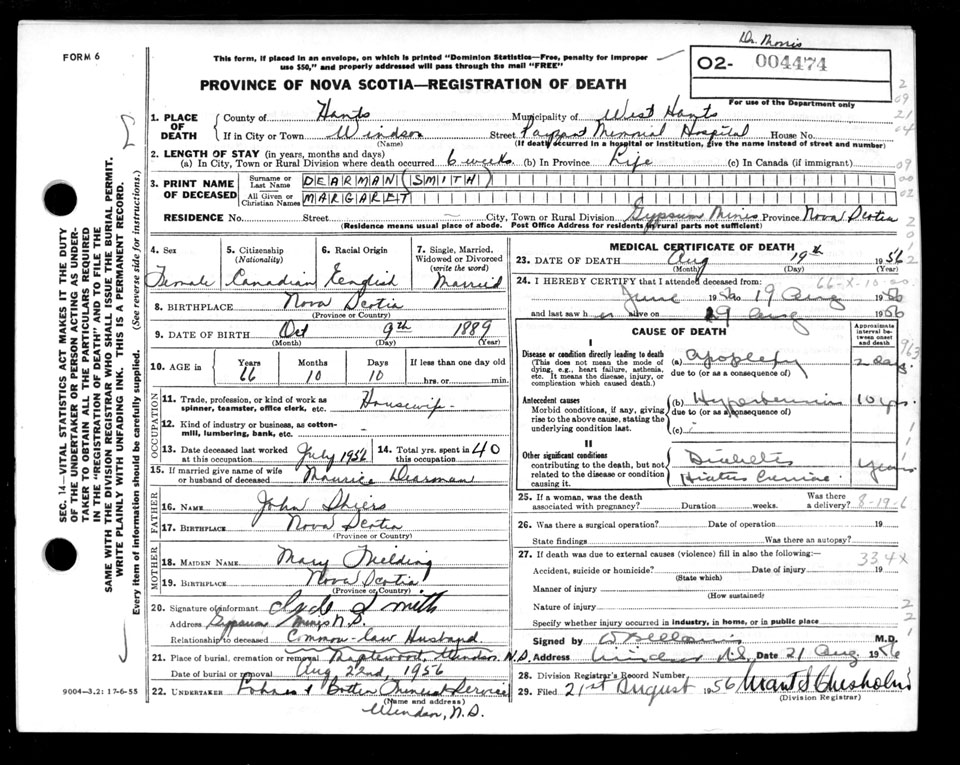 Dr. Morris
FORM 6
This form, if placed in an envelope, on which is printed "Dominion Statistics—Free, penalty for improper
use $50," and properly addressed will pass through the mail "FREE"
02- 004474
For use of the Department only
PROVINCE OF NOVA SCOTIA—REGISTRATION OF DEATH
1. PLACE OF DEATH
County of Hants Municipality of West Hants
If in City or Town Windsor Street Payzant Memorial Hospital House No.
(Name) (If death occurred in a hospital or institution, give the name instead of street and number)
2. LENGTH OF STAY (in years, months and days)
(a) In City, Town or Rural Division where death occurred 6 weeks (b) In Province Life (c) In Canada (if immigrant)
3. PRINT NAME OF DECEASED
Surname or Last Name DEARMAN (SMITH)
All Given or Christian Names MARGARET
RESIDENCE No. Street City, Town or Rural Division Gypsum Mines Province Nova Scotia
(Residence means usual place of abode. Post Office Address for residents in rural parts not sufficient)
4. Sex Female
5. Citizenship (Nationality) Canadian
6. Racial Origin English
7. Single, Married, Widowed or Divorced (write the word) Married
8. BIRTHPLACE Nova Scotia
(Province or Country)
9. DATE OF BIRTH Oct 9th 1889
(Month) (Day) (Year)
10. AGE in Years 66 Months 10 Days 10 If less than one day old
hrs. or min.
OCCUPATION
11. Trade, profession, or kind of work as spinner, teamster, office clerk, etc. Housewife
12. Kind of industry or business, as cotton-mill, lumbering, bank, etc. -
13. Date deceased last worked at this occupation July 1956 14. Total yrs. spent in this occupation 40
15. If married give name of wife or husband of deceased Maurice Dearman
FATHER
16. NAME John Shiers
17. BIRTHPLACE Nova Scotia
(Province or Country)
MOTHER
18. MAIDEN NAME Mary Fielding
19. BIRTHPLACE Nova Scotia
(Province or Country)
20. Signature of informant Clyde S Smith
Address Gypsum Mines N.S.
Relationship to deceased Common-law Husband
21. Place of burial, cremation or removal Maplewood, Windsor N.S.
Date of burial or removal Aug 22nd, 1956
22. UNDERTAKER Funeral Service
(Name and address)
Windsor, N.S.
MEDICAL CERTIFICATE OF DEATH
23. DATE OF DEATH Aug 19th 1956
(Month) (Day) (Year)
66-X-10
24. I HEREBY CERTIFY that I attended deceased from:
June 1956 to 19 Aug 1956
and last saw her alive on 19 Aug 1956
CAUSE OF DEATH
Approximate interval between onset and death
I
Disease or condition directly leading to death (a) Apoplexy 2 days
(This does not mean the mode of dying, e.g., heart failure, asthenia, etc. It means the disease, injury, or complication which caused death.)
due to (or as a consequence of)
Antecedent causes (b) Hypertension 10 yrs.
Morbid conditions, if any, giving rise to the above cause, stating the underlying condition last.
due to (or as a consequence of)
(c)
II
Other significant conditions Diabetes years
contributing to the death, but not related to the disease or condition causing it.
Hiatus Herniae
25. If a woman, was the death associated with pregnancy? Duration weeks. Was there a delivery? 8-19-6
26. Was there a surgical operation? Date of operation 19
State findings Was there an autopsy?
27. If death was due to external causes (violence) fill in also the following:— 334X
Accident, suicide or homicide? Date of injury 19
(State which)
Manner of injury
(How sustained)
Nature of injury
Specify whether injury occurred in industry, in home, or in public place
Signed by M.D.
Address Windsor N.S. Date 21 Aug 1956
28. Division Registrar's Record Number
29. Filed 21st August 1956 Chisholm
(Division Registrar)
SEC. 14—VITAL STATISTICS ACT MAKES IT THE DUTY
OF THE UNDERTAKER OR PERSON ACTING AS UNDER-
TAKER TO OBTAIN ALL THE PARTICULARS REQUIRED
IN THE "REGISTRATION OF DEATH" AND TO FILE THE
SAME WITH THE DIVISION REGISTRAR WHO SHALL ISSUE THE BURIAL PERMIT.
WRITE PLAINLY WITH UNFADING INK. THIS IS A PERMANENT RECORD.
Every item of information should be carefully supplied. (See reverse side for instructions.)
9004—3.2: 17-6-55